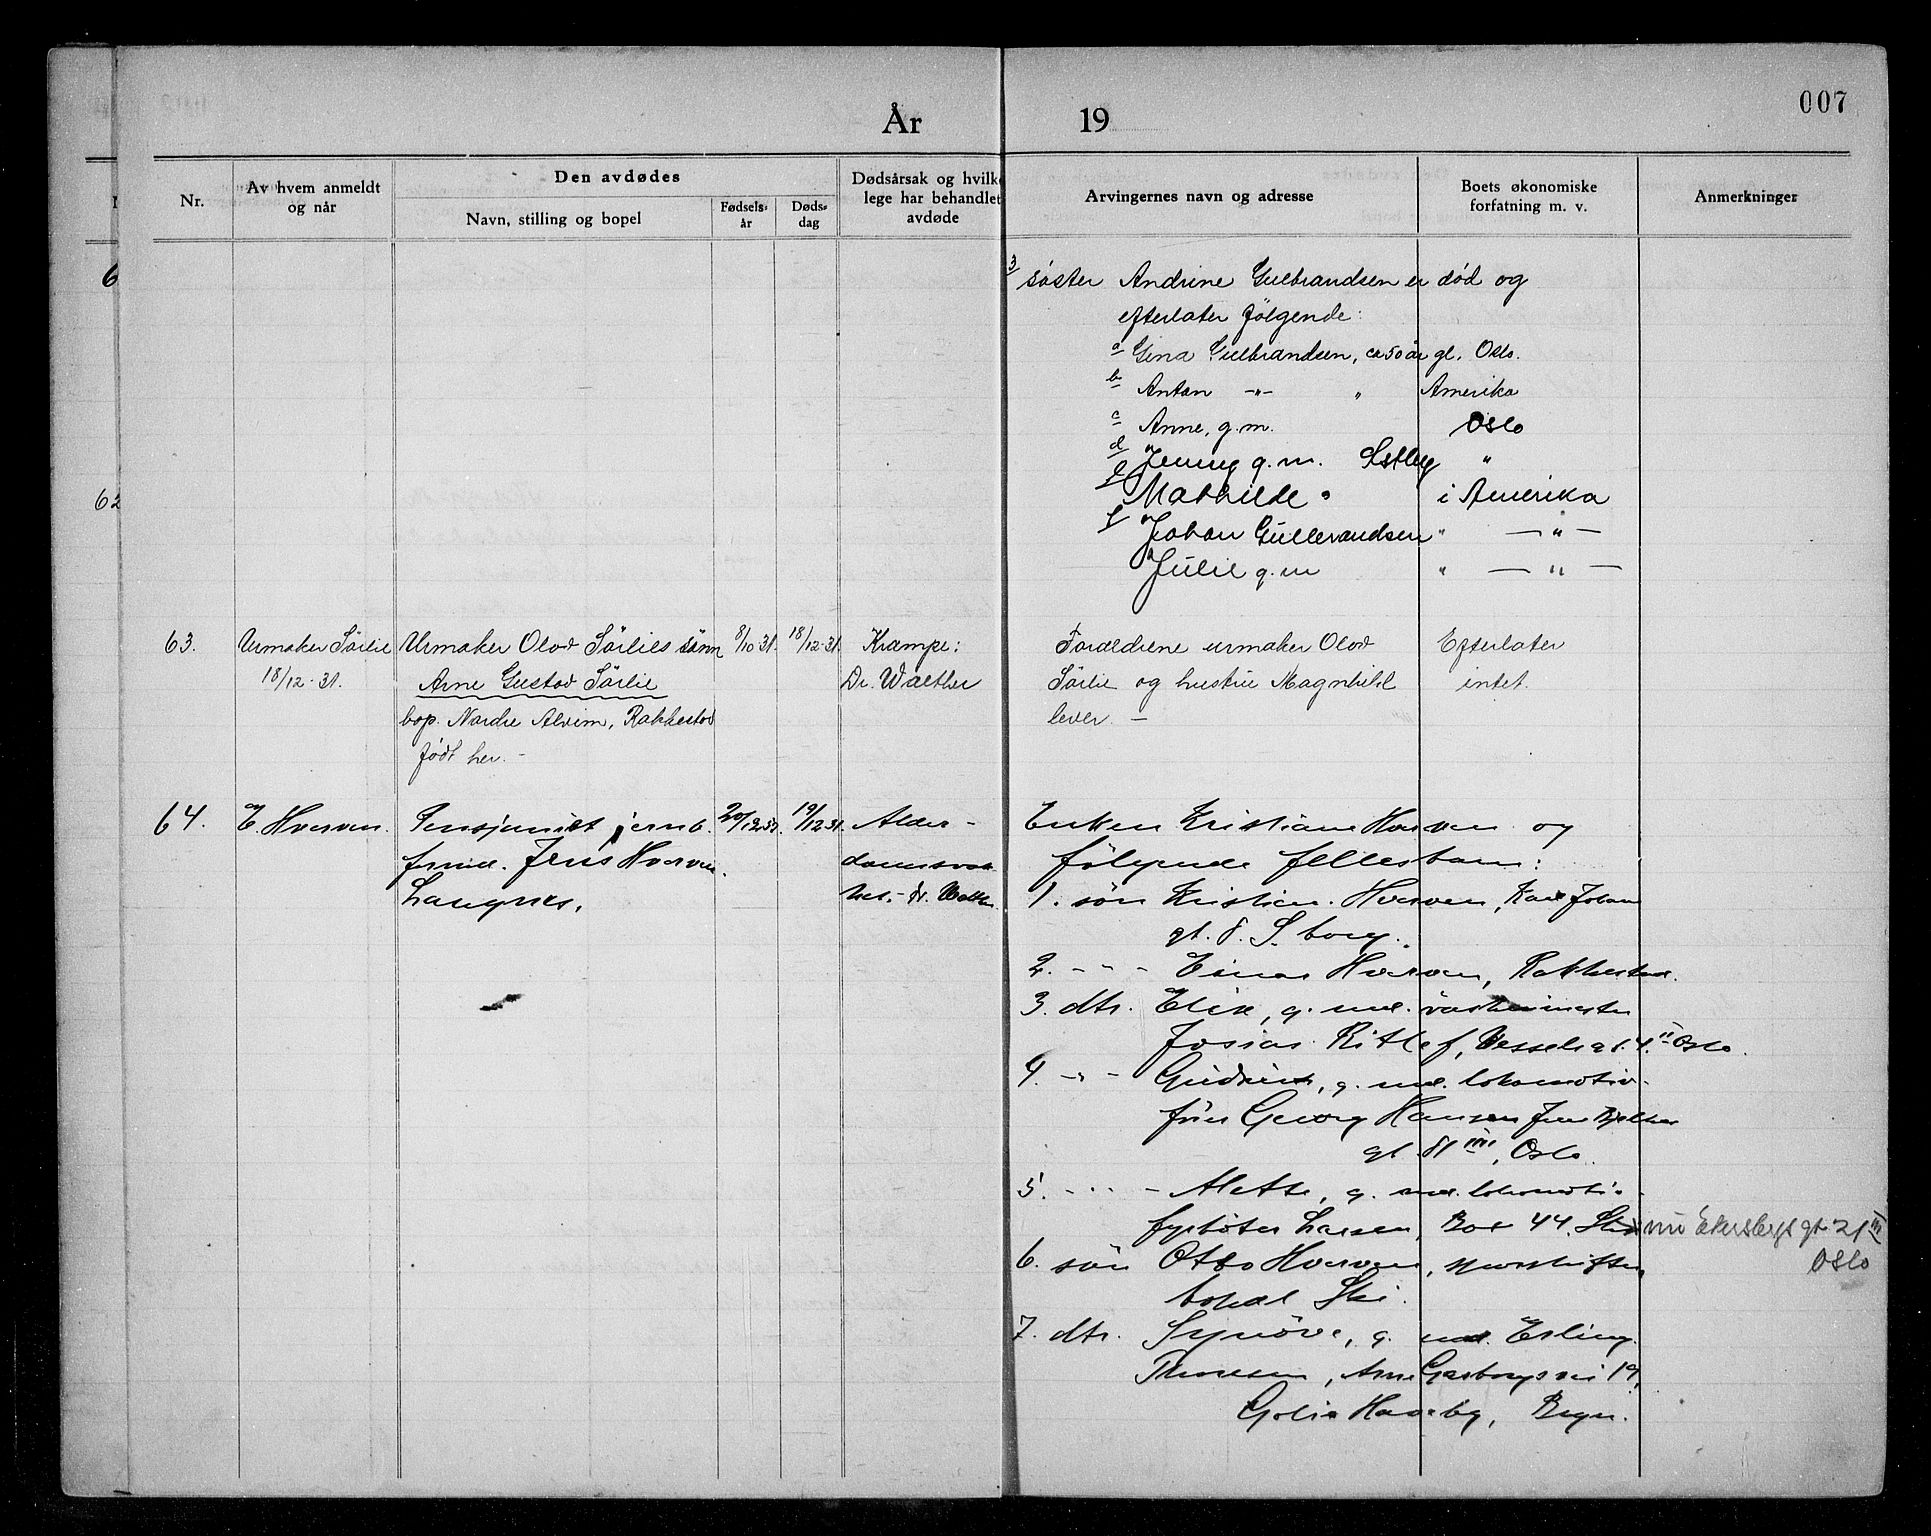 007
År 19
Nr.
Av hvem anmeldt
og når
Den avdødes
Navn, stilling og bopel
Fødsels-
år
Døds-
dag
Dødsårsak og hvilke
lege har behandlet
avdøde
Arvingernes navn og adresse
Boets økonomiske
forfatning m. v.
Anmerkninger
6
62
3 søster Andrine Gulbrandsen er død og
efterlater følgende:
a Gina Gulbrandsen, ca 50 år gl. Oslo.
b Anton -"- " Amerika
c Anne, g.m. Oslo
d Jenny g.m. "
e Mathilde " i Amerika
f Johan Gullbrandsen " -"-
Julie g.m " -"-
63.
Urmaker Sørlie
18/12-31.
Urmaker Olav Sørlies sønn
Arne Gustav Sørlie
bop. Nordre Alvim, Rakkestad
født her. -
8/10 31.
18/12-31.
Krampe:
Dr. Walther
Forældrene urmaker Olav
Sørlie og hustru Magnhild
lever. -
Efterlater
intet.
64.
E. Hverven.
Pensjonist jernb.
Jens Hverven.
Langnes.
19/12 31.
Alder-
doms
- dr. Walther.
Enken Kristiane Hverven og
følgende fellesbarn:
1. søn Kristian Hverven, Karl Johans
gt. 8. S. borg.
2. - " - Einar Hverven, Rakkestad.
3. dtr. g. med.
Josias Wesselsgt. 4. II Oslo.
4. - " - g. med. lokomotiv-
fører Georg Hansen Jens Bjelkes
gt. 81 III, Oslo.
5. - " - Alette, g. med. lokomotiv-
fyrbøter Larsen, Box 44. Ski
nu Ekersbergs gt. 21 III
Oslo
6. søn Otto Hverven,
bopæl Ski.
7. dtr. Synøve, g. med. Erling
Thoresen, Arne Garborgs vei 19,
Haveby,